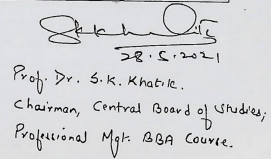 28.5.2021
Prof. Dr. S.K. Khatik.
Chairman, Central Board of Studies,
Professional Mgt. BBA Course.